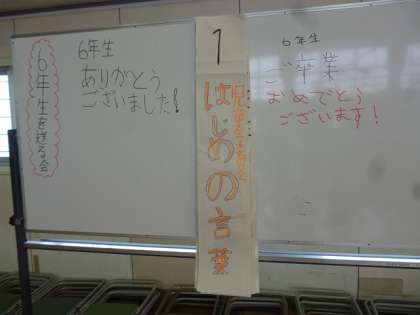 6年生を送る会
6年生
ありがとう
ございました!
1
はじめの言葉
6年生
ご卒業
おめでとう
ございます!